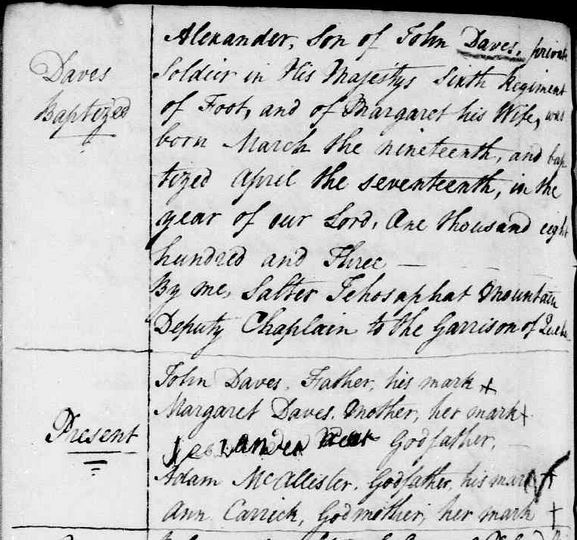 Daves
Baptized
Alexander, Son of John Daves, private
Soldier in His Majestys Sixth Regiment
of Foot, and of Margaret his Wife, was
born March the nineteenth, and bap
tized April the seventeenth, in the
year of our Lord, One thousand eight
hundred and Three
By me, Salter Jehosaphat Mountain
Deputy Chaplain to the Garrison of Quebec
Present
John Daves. Father, his mark +
Margaret Daves. Mother, her mark +
Godfather,
Adam McAllester, Godfather, his mark +
Ann Carrick, Godmother, her mark +